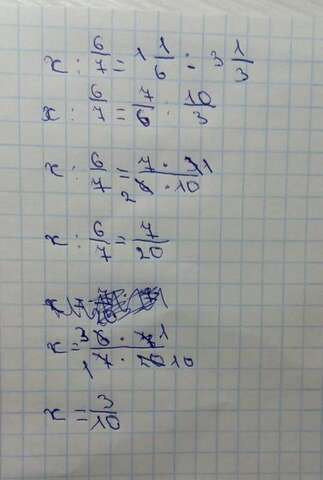 x : 6/7 = 1 1/6 : 3 1/3
x : 6/7 = 7/6 : 10/3
x : 6/7 = 7 · 3 1 / 2 6 · 10
x : 6/7 = 7/20
x = 3 6 · 7 1 / 1 7 · 20 10
x = 3/10